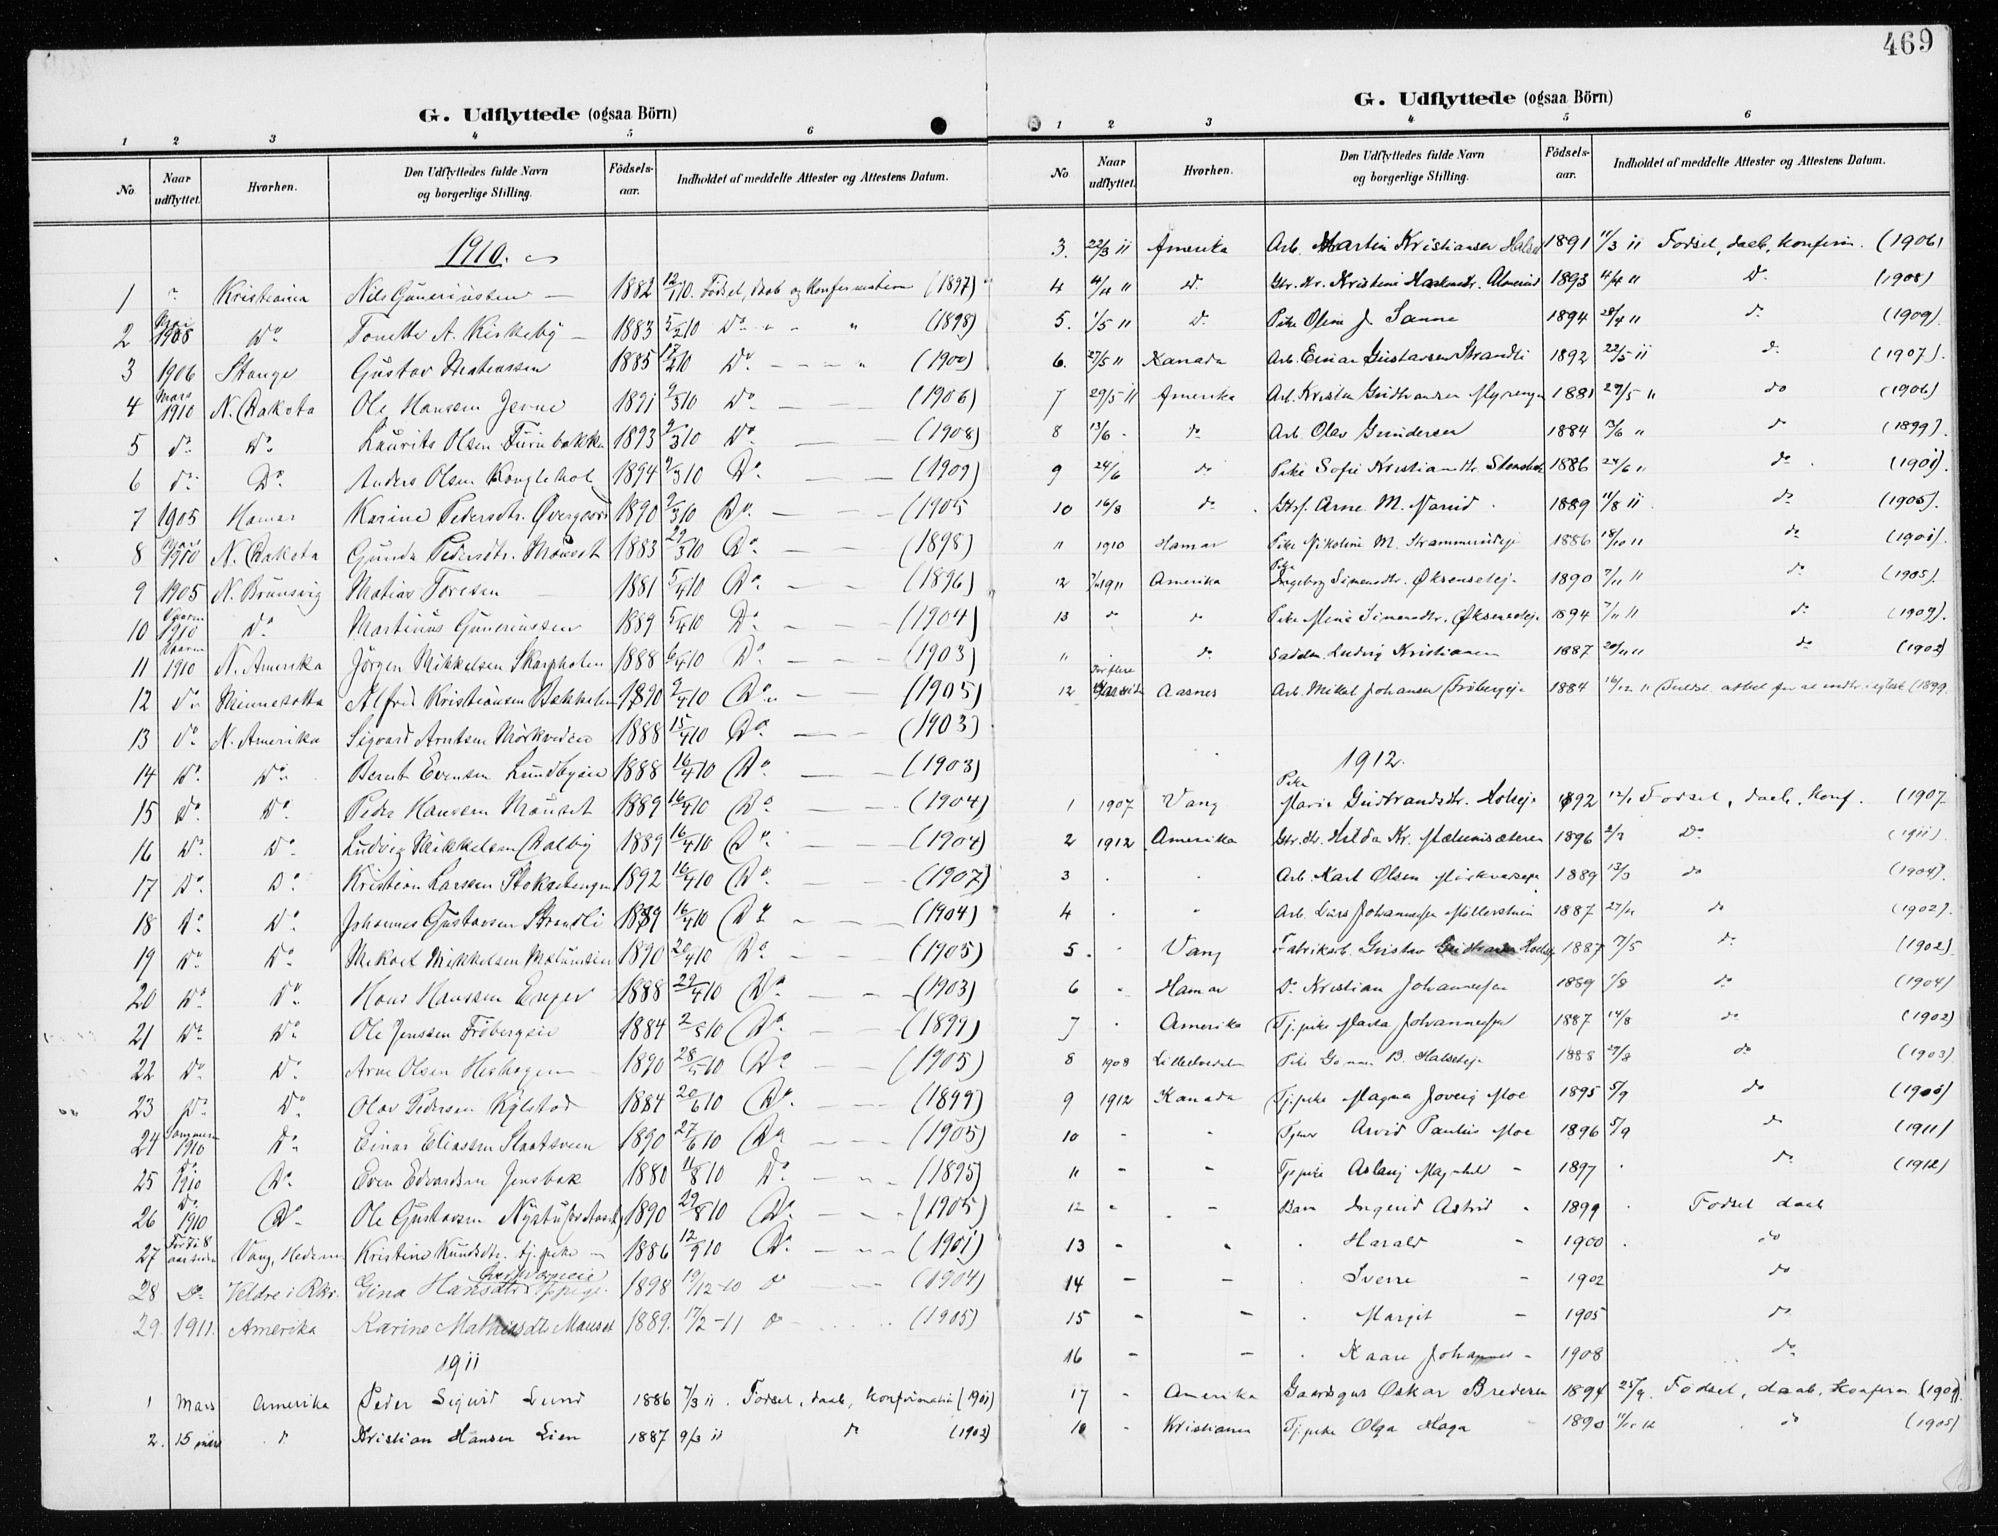 469
G. Udflyttede (ogsaa Börn)
1 2 3 4 5 6
No Naar udflyttet. Hvorhen. Den Udflyttedes fulde Navn og borgerlige Stilling. Födsels-aar. Indholdet af meddelte Attester og Attestens Datum.
1910.
1 " Kristiania Nils Guneriussen 1882 12/1 10. Födsel, daab og Konfirmation (1897)
2 1908 Do Tonette A. Kirkeby 1883 5/2 10 Do (1898)
3 1906 Stange Gustav Mathiassen 1885 10 Do (1900)
4 Mars 1910 N. Dakota Ole Hansen Jevne 1891 9/3 10 Do (1906)
5 do Do Laurits Olsen Furubakken 1893 9/3 10 Do (1908)
6 do Do Anders Olsen Kongleholt 1894 9/3 10 Do (1909)
7 1905 Hamar Karine Pedersdtr. Övergaard 1890 9/3 10 Do (1905
8 Mars 1910 N. Dakota Gunda Pedersdtr. Mauset 1883 29/3 10 Do (1898)
9 1905 N. Brunsvig Matias Toresen 1881 5/4 10 Do (1896)
10 1910 Do Martinus Guneriussen 1889 5/4 10 Do (1904)
11 1910 N. Amerika Jörgen Mikkelsen Skarpholen 1888 6/4 10 Do (1903)
12 do Minnesotta Alfred Kristiansen Bakkehelm 1890 9/4 10 Do (1905)
13 do N. Amerika Sigvard Arntsen Mörkved 1888 15/4 10 Do (1903)
14 Do Do Bernt Evensen Lundbyeie 1888 16/4 10 Do (1903)
15 Do Do Peder Hansen Mauset 1889 16/4 10 Do (1904)
16 Do Do Ludvig Mikkelsen Dalby 1889 16/4 10 Do (1904)
17 Do Do Kristian Larssen Stoksebengen 1892 16/4 10 Do (1907)
18 Do Do Johannes Gustavsen Strandli 1889 16/4 10 Do (1904)
19 Do Do Mikael Mikkelsen Mælumseie 1890 20/4 10 Do (1905)
20 Do Do Hans Hanssen 1888 29/4 10 Do (1903)
21 Do Do Ole Jenssen Fröbergseie 1884 2/5 10 Do (1899)
22 Do Do Arne Olsen Herhagen 1890 28/5 10 Do (1905)
23 Do Do Olav Pedersen Kylstad 1884 20/6 10 Do (1899)
24 Sommeren 1910 Do Einar Eliassen Slaatsveen 1890 27/6 10 Do (1905)
25 Do 1910 Do Even Edvardsen Jensbak 1880 11/8 10 Do (1895)
26 Do 1910 Do Ole Gustavsen 1890 29/8 10 Do (1905)
27 For 7 à 8 aar siden Vang, Hedem. Kristine Knudsdtr. tj. pike 1886 12/9 10 Do (1901)
28 Do Veldre i Rkr. Gina Hansdtr. 1898 19/12-10 do (1904)
29. 1911. Amerika Karine Mathiasdtr. Mauset 1889. 17/2-11 do (1905)
1911
1 Mars Amerika Peder Sigurd Lund 1886 7/3 11. Fodsel, daab, konfirmation (1901)
2. 15 mars do Kristian Hansen Lien 1887 9/3 11 do (1902)
G. Udflyttede (ogsaa Börn)
1 2 3 4 5 6
No Naar udflyttet. Hvorhen. Den Udflyttedes fulde Navn og borgerlige Stilling. Födsels-aar. Indholdet af meddelte Attester og Attestens Datum.
3. 22/3 11 Amerika Arb. Martin Kristiansen 1891 11/3 11 Fodsel, daab, konfirm. (1906)
4 4/4 " do Gtr. dtr. Kristine 1893 4/4 " Do (1908)
5. 1/5 " Do Pike Olin J. Sanne 1894 28/4 " do (1909)
6. 27/5 " Kanada Arb. Einar Gustavsen Strandli 1892 22/5 11 do (1907).
7 29/5 11 Amerika Arb. Kristen Gudbrandsen Myrengen 1881 29/5 " do (1906)
8 13/6 do Arb. Olav Gundersen 1884 13/6 " do (1899).
9 24/6 do Pike Sofie Kristiansdtr. 1886 24/6 " do (1901).
10 16/8 do Gbrs. Arne M. Narud 1889 11/8 11 do (1905).
11 1910 Hamar Pike Nikoline M. Strammerudeje 1886 18/10 11 do (1901).
12 1911 Amerika Pike Ingeborg Simensdtr. Øksenseteje 1890 7/11 11 do (1905).
13 do do Pike Mina Simensdtr. Øksenseteje 1894 7/11 11 do (1909).
" do Sadelm. Ludvig Kristiansen 1887 20/11 11 do (1902)
12 For flere aar siden Aasnes Arb. Mikal Johansen Fröbergeje 1884 (1899.
1912.
1 1907 Vang Pike Marie Gudbrandsdtr. Holseje 1892 12/1 Fodsel, daab, Konf. (1907.
2 1912 Amerika Gtr. dtr. Hilda Kr. Mælumsæteren 1896 2/3 Do (1911).
3 " " Arb. Karl Olsen 1889 13/3 do (1904).
4 " " Arb. Lars Johannessen Möllerstuen 1887 do (1902).
5. " Vang Fabrikarb. Gustav Gudbrandsen 1887 7/5 do (1902).
6 " Hamar Do Kristian Johannessen 1889 1/8 do (1904)
7 " Amerika Tj.pike Marta Johannessen 1887 14/8 do (1902)
8 1908 Pike Gunna B. Halseteje 1888 29/8 do (1903).
9 1912 Kanada Tj.pike Magna Joveig Moe 1895 5/9 do
10 - - Tjener Arvid Paulus Moe 1896 5/9 do (1911)
11 - - Tj.pike Aslaug Magnhild - 1897 do (1912)
12 - - Barn Ingerid Astrid - 1899 Fodsel daab
13 - - " Harald - 1900 do
14 - - " Sverre - 1902 do
15 - - " Margit - 1905 do
16 - - " Kaare Johannes - 1908 do
17 - Amerika Gaardsgut Oskar Bredesen 1894 25/9. Födsel, daab, Konfirm (1909).
18 - Kristiania Tj.pike Olga Haga 1890 do (1905)